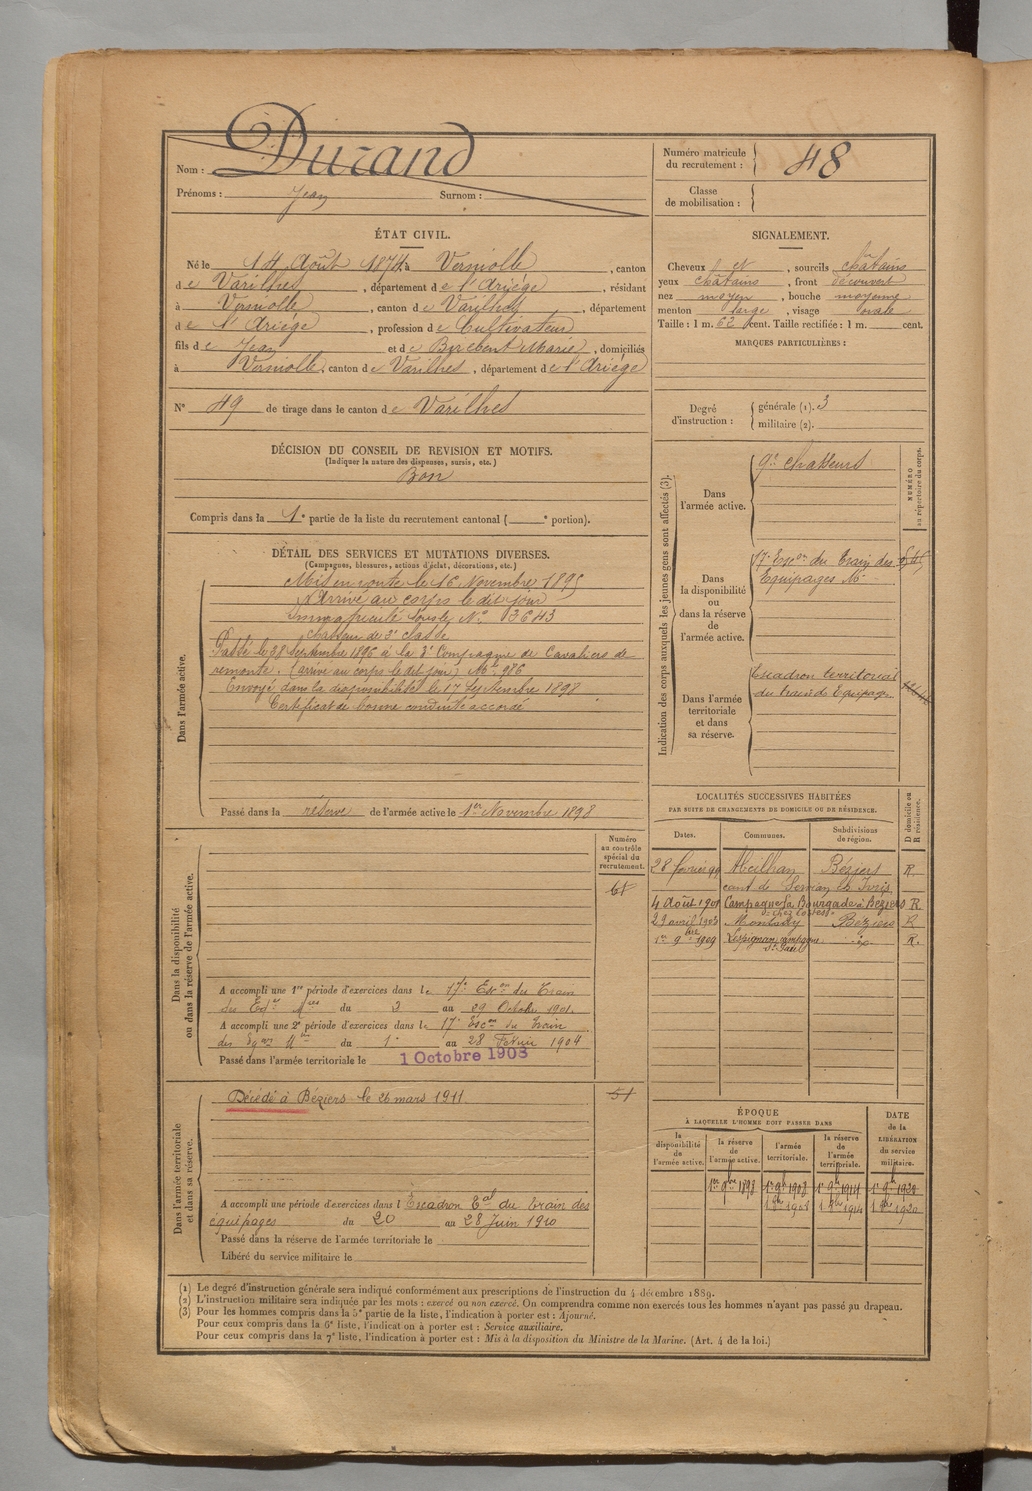 Nom : Durand
Prénoms : Jean Surnom :
Numéro matricule du recrutement : 48
Classe de mobilisation :
ÉTAT CIVIL.
Né le 14 Août 1874 à Verniolle, canton
de Varilhes, département de l'Ariège, résidant
à Verniolle, canton de Varilhes, département
de l'Ariège, profession de Cultivateur
fils de Jean et de Birebent Marie, domiciliés
à Verniolle, canton de Varilhes, département de l'Ariège
N° 49 de tirage dans le canton de Varilhes
SIGNALEMENT.
Cheveux et, sourcils châtains
yeux châtains, front découvert
nez moyen, bouche moyenne
menton large, visage ovale
Taille : 1 m. 62 cent. Taille rectifiée : 1 m. cent.
MARQUES PARTICULIÈRES :
Degré d'instruction : générale (1). 3
militaire (2).
DÉCISION DU CONSEIL DE REVISION ET MOTIFS.
(Indiquer la nature des dispenses, sursis, etc.)
Bon
Compris dans la 1e partie de la liste du recrutement cantonal ( e portion).
DÉTAIL DES SERVICES ET MUTATIONS DIVERSES.
(Campagnes, blessures, actions d'éclat, décorations, etc.)
Dans l'armée active.
Mis en route le 16 Novembre 1895
Arrivé au corps le dit jour
Immatriculé sous le N° 3643
Chasseur de 2e classe
Passé le 28 Septembre 1896 à la 3e Compagnie de Cavaliers de
remonte. (arrivé au corps le dit jour) No 986
Envoyé dans la disponibilité le 17 Septembre 1898
Certificat de bonne conduite accordé
Passé dans la réserve de l'armée active le 1er Novembre 1898
Indication des corps auxquels les jeunes gens sont affectés (3).
NUMÉRO au répertoire du corps.
Dans l'armée active.
9e chasseurs
Dans la disponibilité ou dans la réserve de l'armée active.
17e Escon du Train des
Equipages Mres
Dans l'armée territoriale et dans sa réserve.
Escadron territorial
du train des Équipages
LOCALITÉS SUCCESSIVES HABITÉES
PAR SUITE DE CHANGEMENTS DE DOMICILE OU DE RÉSIDENCE.
Dates. Communes. Subdivisions de région. D domicile ou R résidence.
28 février 99 Abeilhan Béziers R.
cant de Servian
4 Août 1901 Campagne La Bourgade à Béziers R
23 avril 1903 Montady Béziers R
1er 9bre 1909 Lespignan campagne R.
Numéro au contrôle spécial du recrutement.
Dans la disponibilité ou dans la réserve de l'armée active.
A accompli une 1re période d'exercices dans le 17e Escon du Train
des Eqes Mres du 2 au 29 Octobre 1901.
A accompli une 2e période d'exercices dans le 17e Escon du Train
des Eqges Mres du 1er au 28 Février 1904
Passé dans l'armée territoriale le 1 Octobre 1908
Dans l'armée territoriale et dans sa réserve.
Décédé à Béziers le 26 mars 1911
51
A accompli une période d'exercices dans l'Escadron Eal du train des
équipages du 20 au 28 Juin 1910
Passé dans la réserve de l'armée territoriale le
Libéré du service militaire le
ÉPOQUE
À LAQUELLE L'HOMME DOIT PASSER DANS
la disponibilité de l'armée active. la réserve de l'armée active. l'armée territoriale. la réserve de l'armée territoriale. DATE de la LIBÉRATION du service militaire.
1er 9bre 1898 1er 9b 1908 1er 9b 1914 1er 9b 1920
1 8bre 1908 1 8bre 1914 1 8bre 1920
(1) Le degré d'instruction générale sera indiqué conformément aux prescriptions de l'instruction du 4 décembre 1889.
(2) L'instruction militaire sera indiquée par les mots : exercé ou non exercé. On comprendra comme non exercés tous les hommes n'ayant pas passé au drapeau.
(3) Pour les hommes compris dans la 5e partie de la liste, l'indication à porter est : Ajourné.
Pour ceux compris dans la 6e liste, l'indication à porter est : Service auxiliaire.
Pour ceux compris dans la 7e liste, l'indication à porter est : Mis à la disposition du Ministre de la Marine. (Art. 4 de la loi.)